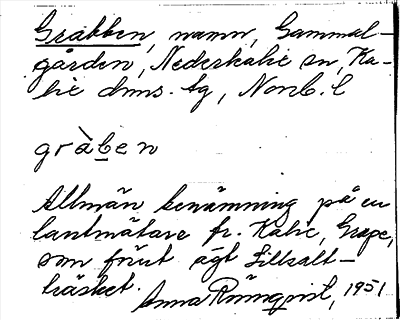 Grabben, namn, Gammel-
gården, Nederkalix sn, Ka-
lix dms. tg, Norrb. l
gràben
Allmän benämning på en
lantmätare fr. Kalix, Grape,
som förut ägt Lillsalt-
träsket.
Anna Rönnqvist, 1951